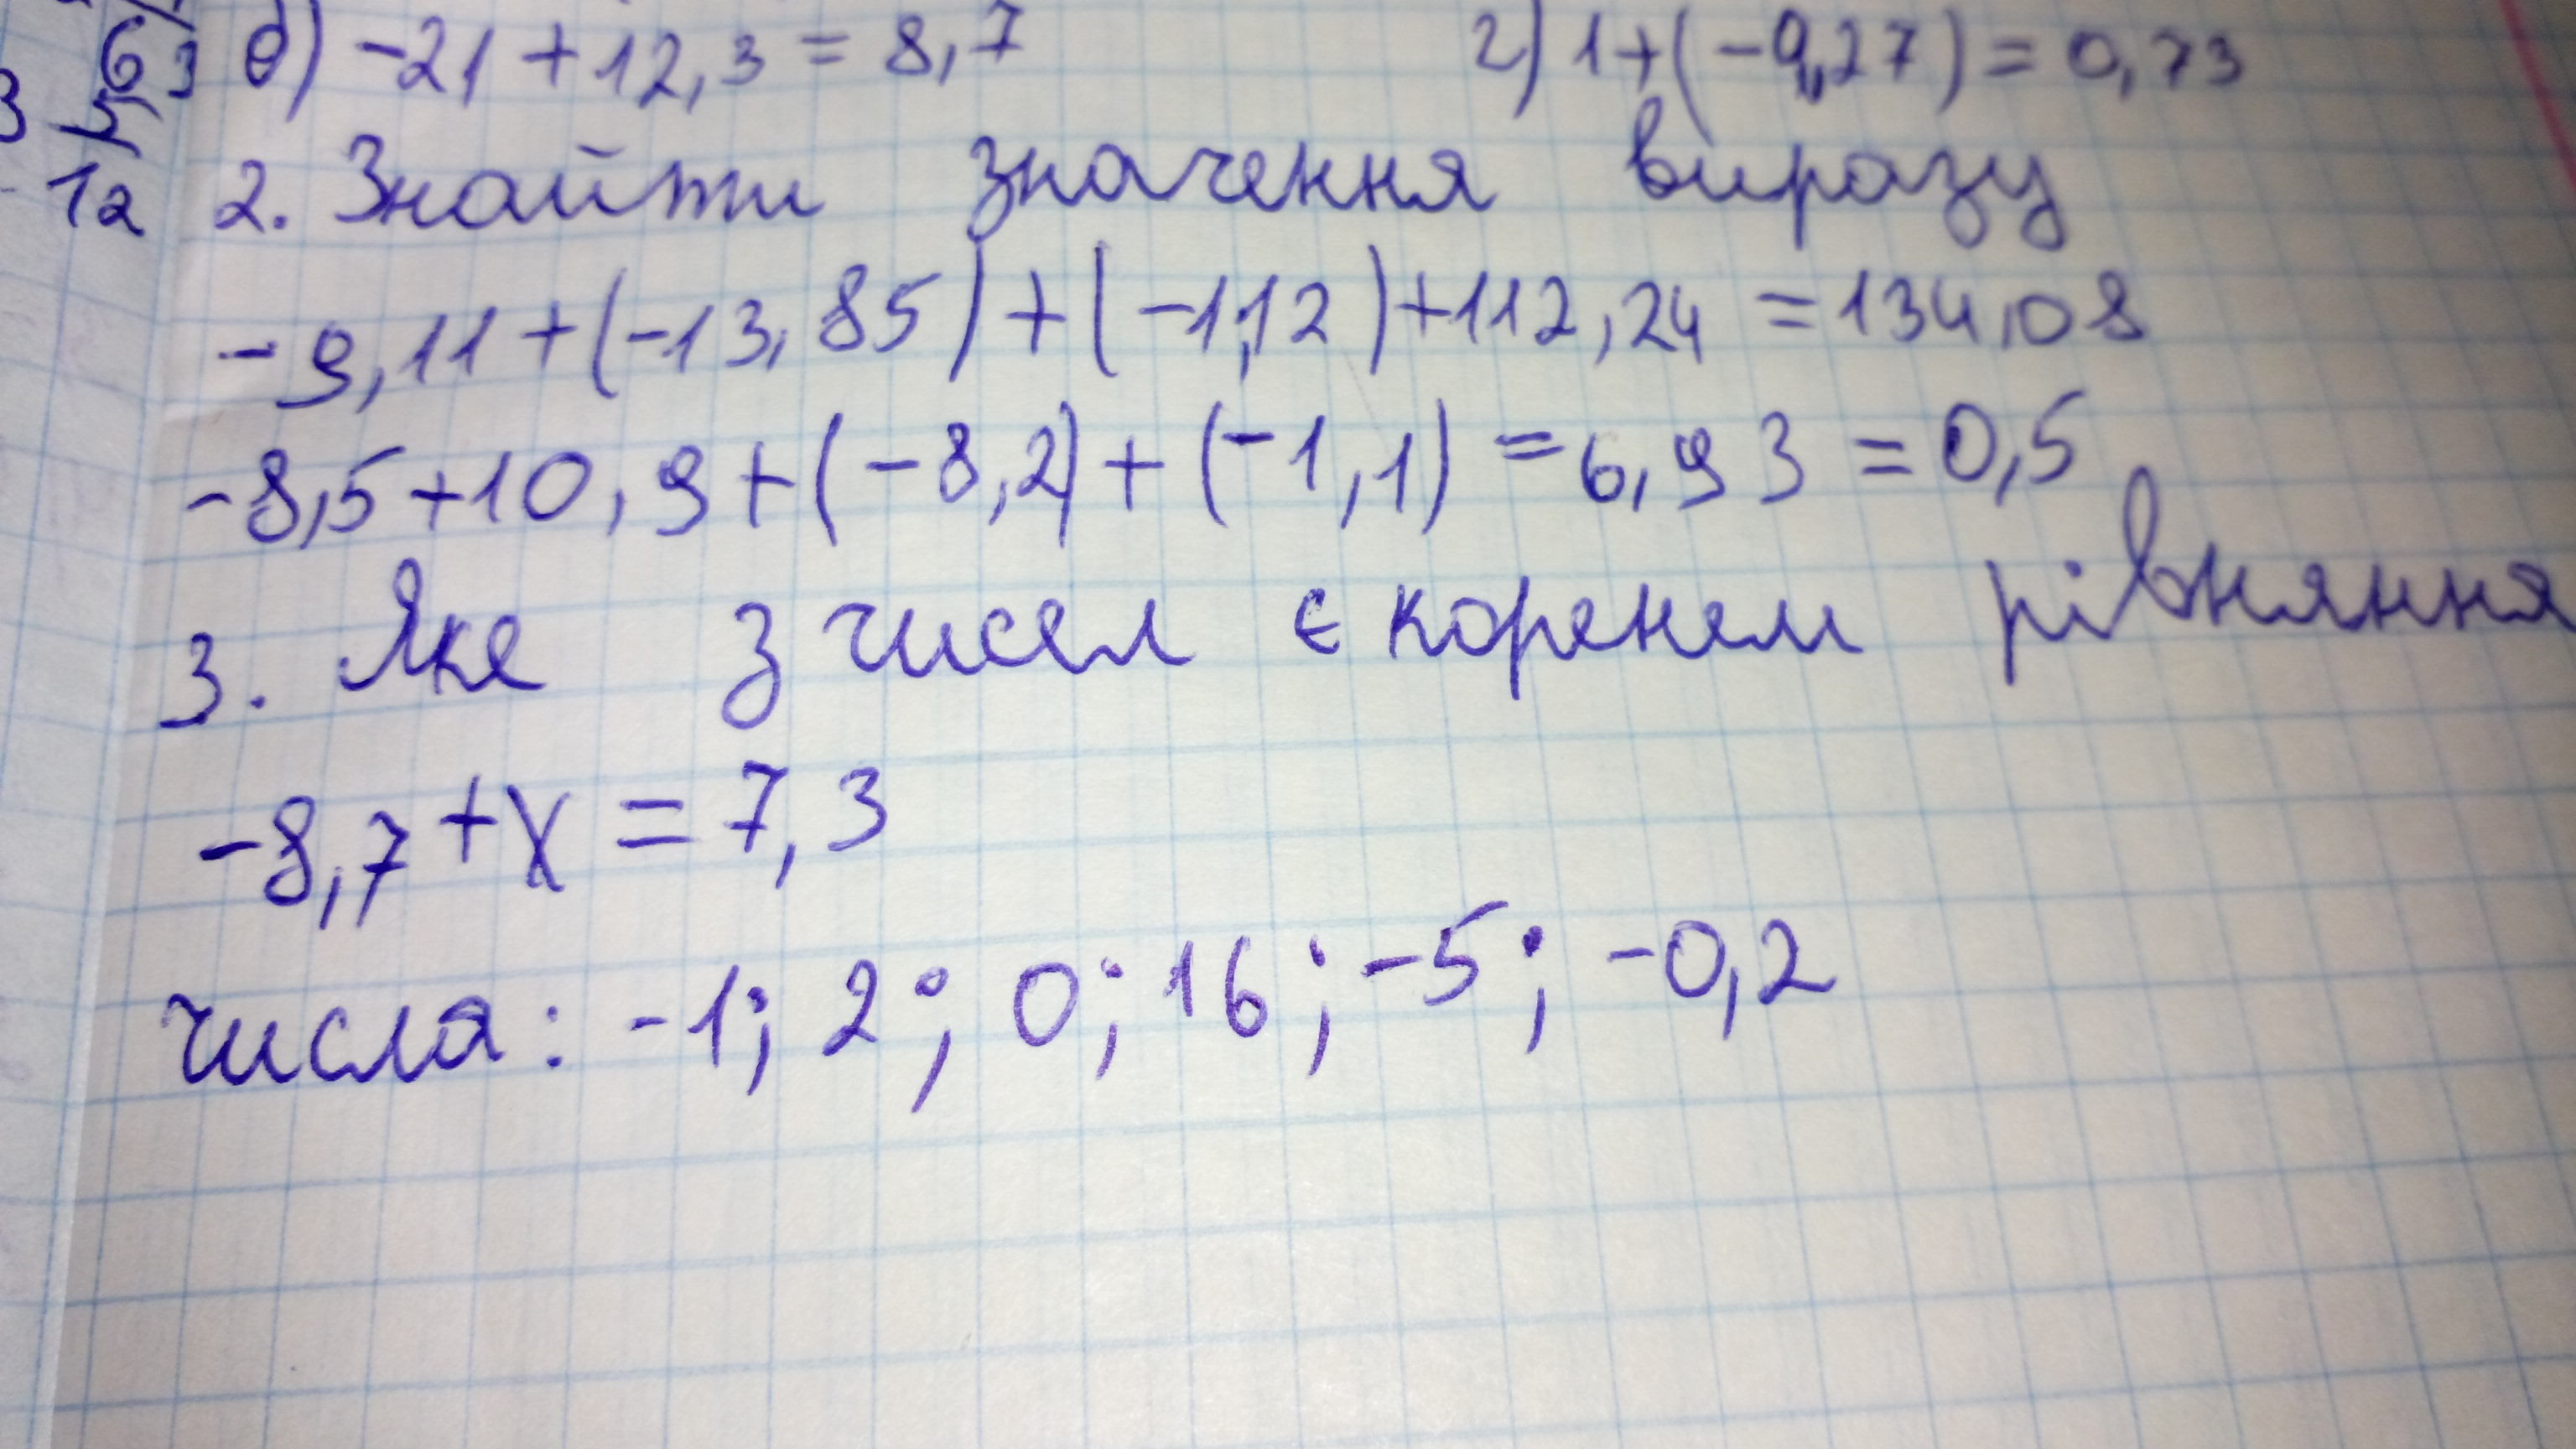 б) -21 + 12,3 = 8,7 г) 1+(-0,27) = 0,73
12 2. Знайти значення виразу
-9,11+(-13,85)+(-1,12)+112,24 = 134,08
-8,5+10,9+(-8,2)+(-1,1) = 6,93 = 0,5
3. Яке з чисел є коренем рівняння
-8,7+х = 7,3
числа: -1; 2; 0; 16; -5; -0,2